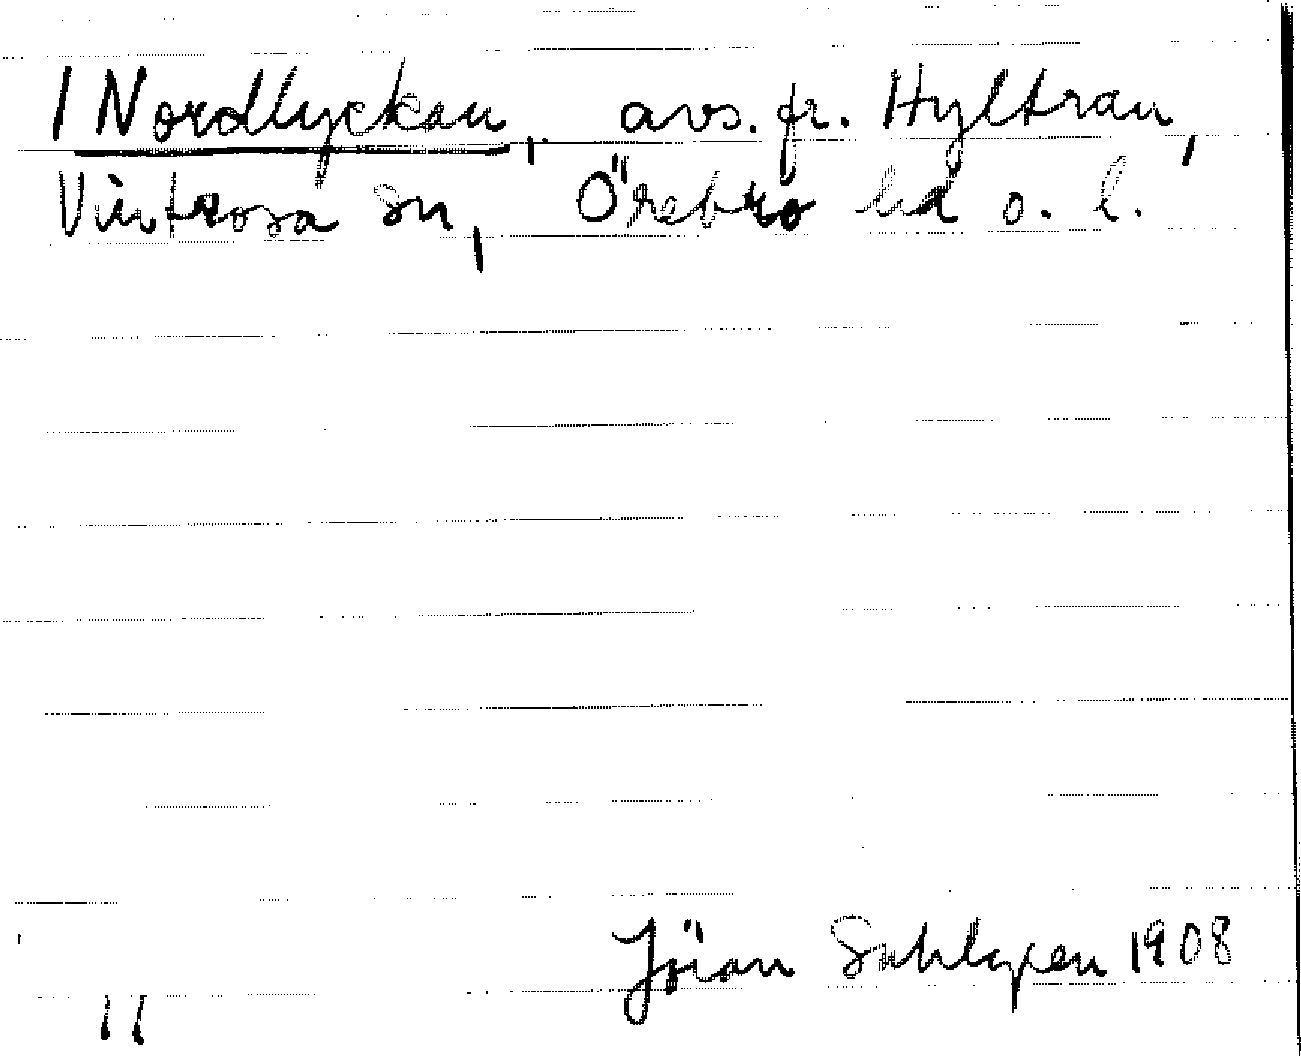 1 Nordlyckan, avs. fr. Hyltran,
Vintrosa sn, Örebro hd o. l.
Jöran Sahlgren 1908